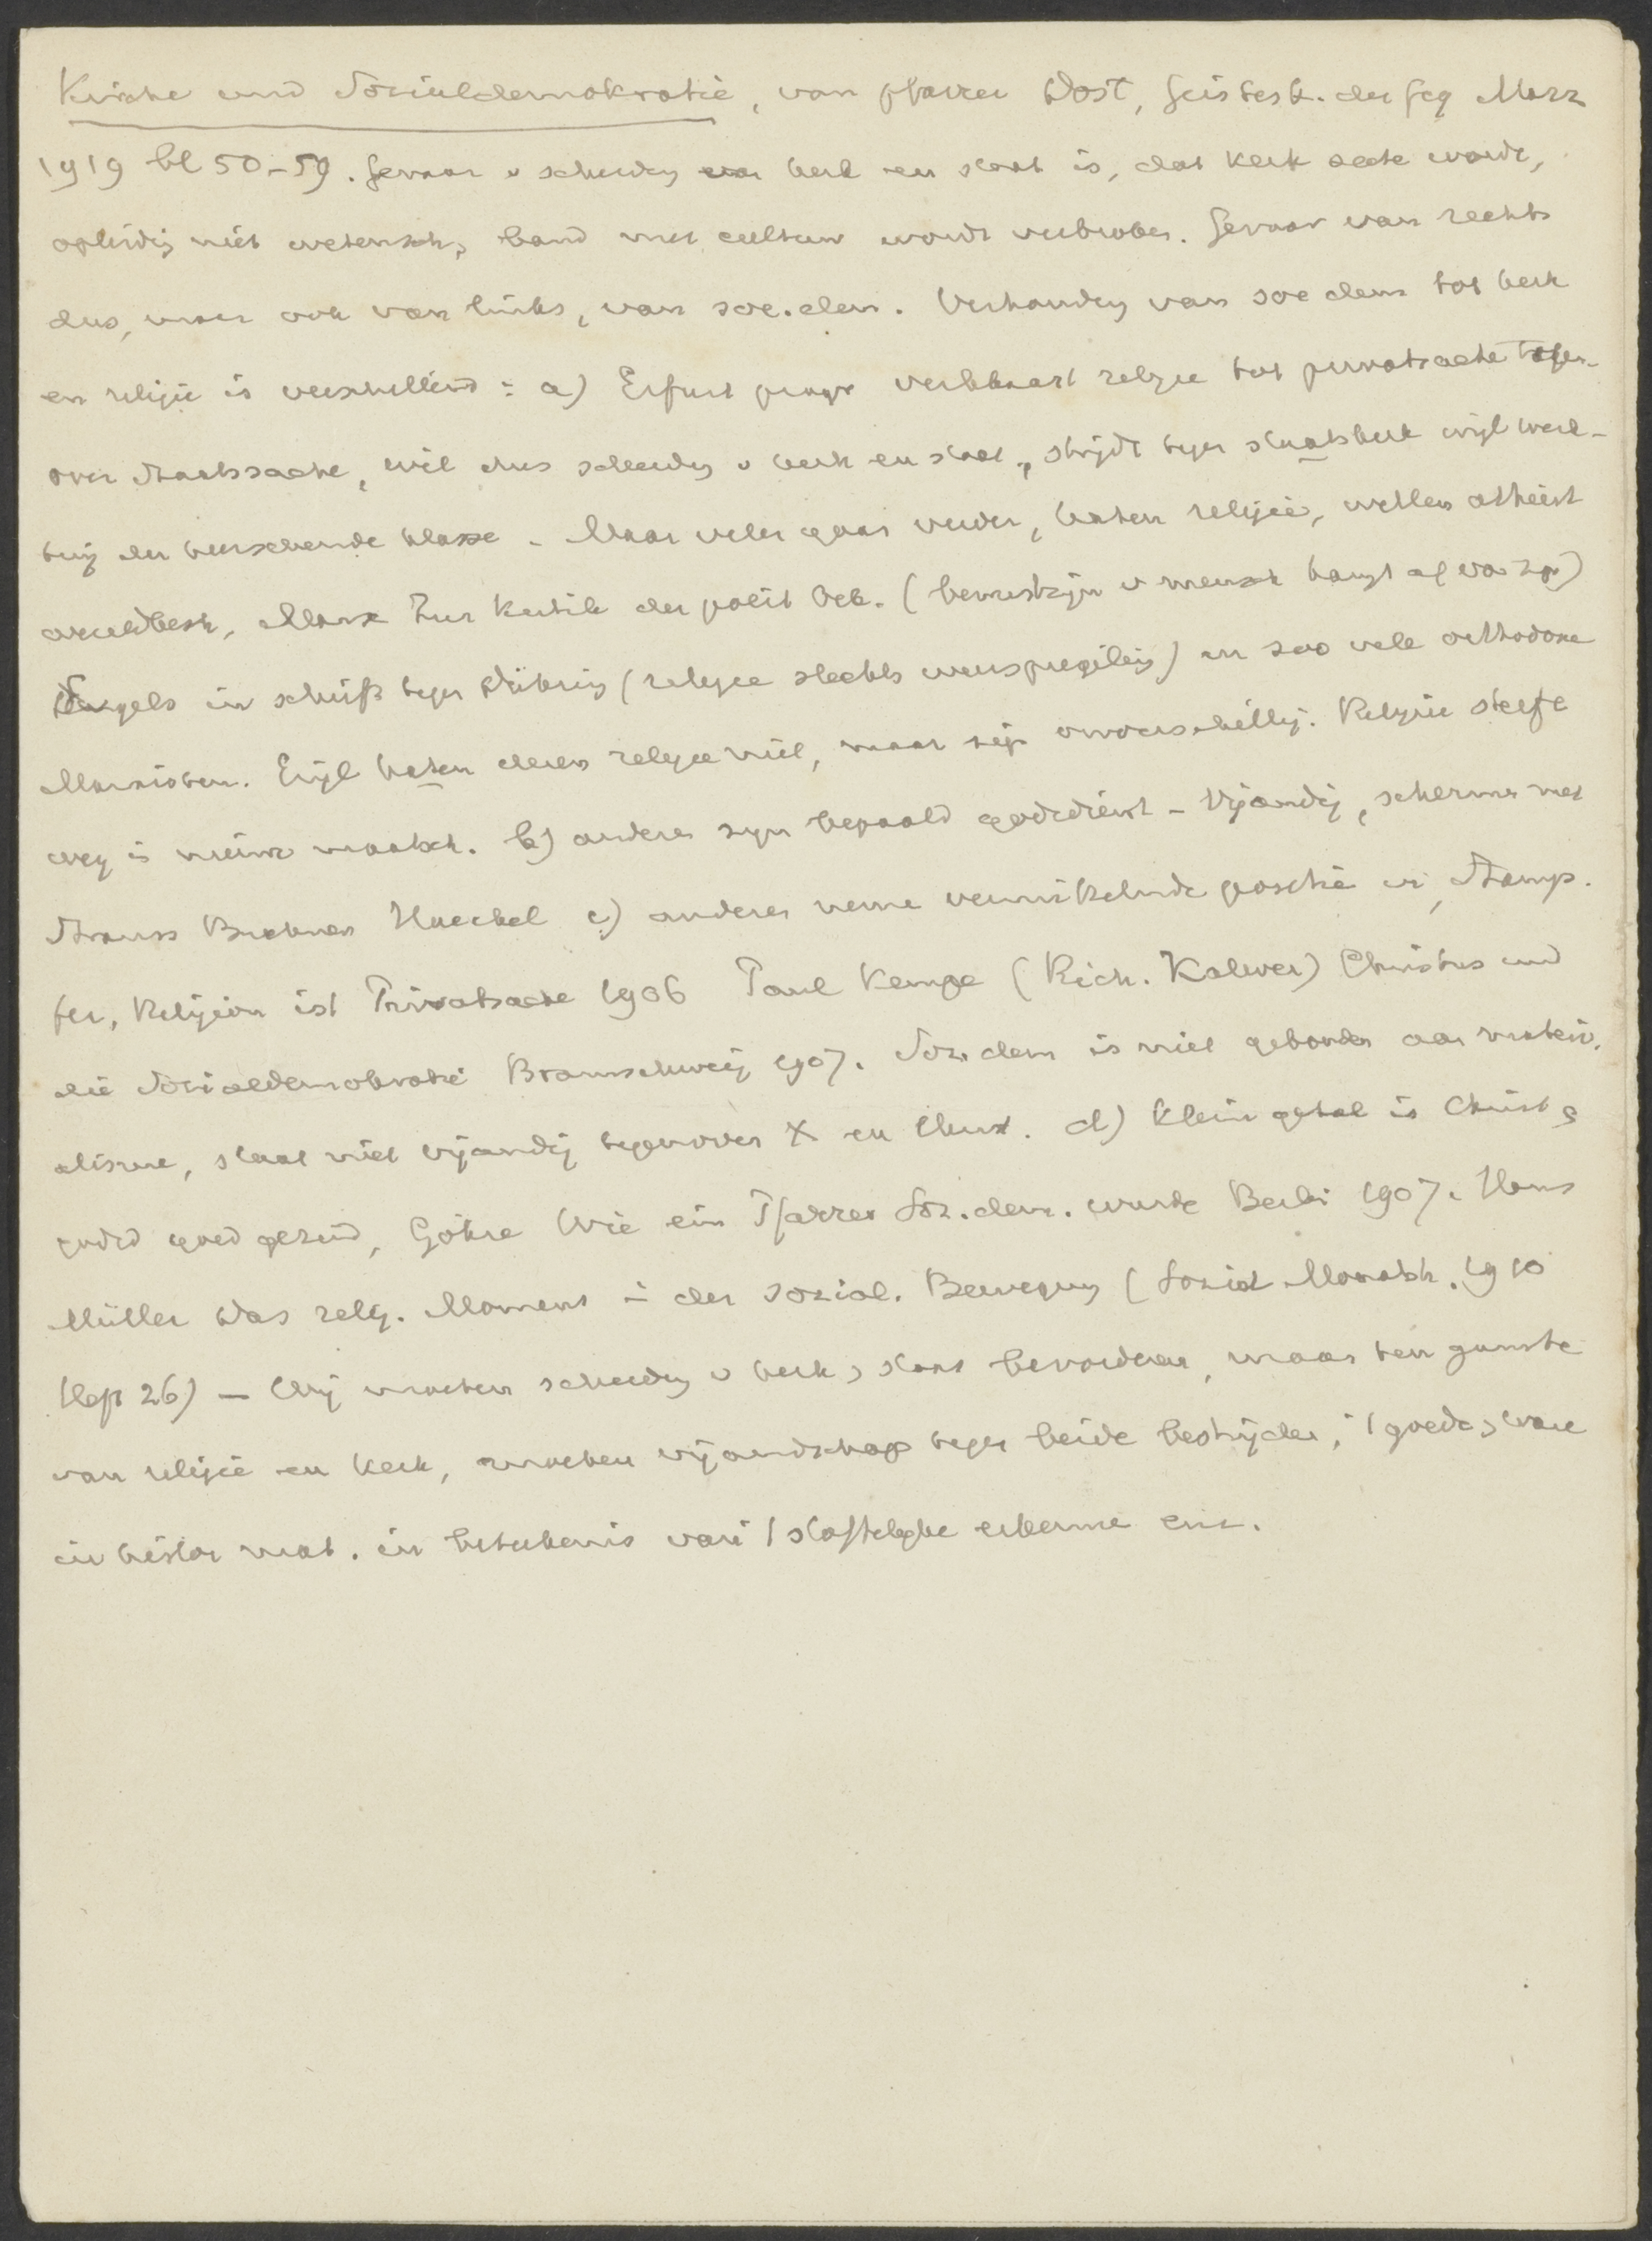 Kirche und Sozialdemokratie, van pfarrer Dost, Geistesk. der Geg März
1919 bl 50-59. Gevaar v scheiding van kerk en staat is, dat kerk secte wordt,
opleidig niet wetensch, band met cultuur wordt verbroken. Gevaar van rechts
dus, maar ook van links, van soc.dem. Verhoudig van soc dem tot kerk
en religie is verschillend: a) Erfurt progr verklaart religie tot privatsache tegen-
over Staatssache, wil dus scheidig v kerk en staat, strijdt tegen staatskerk wijl werk-
tuig der heerschende klasse. Maar velen gaan verder, haten religie, willen atheist
wereldbesch, Marx Zur Kritik der polit Oek. (bewustzijn v mensch hangt af van zijn)
Engels in schrift tegen Dühring (religie slechts weerspiegeling) en zoo vele orthodoxe
Marxisten. Eigl haten dezen religie niet, maar zijn onverschillig. Religie sterft
weg in nieuwe maatsch. b) anderen zijn bepaald godsdienst-vijandig, schermen met
Strauss Buchner Haeckel c) anderen nemen bemiddelende positie in, Stamp-
fer, Religion ist Privatsache 1906 Paul Kempe (Rich. Kalwer) Christus und
die Sozialdemokratie Braunschweig 1907. Soz. dem is niet gebonden aan materi-
alisme, staat niet vijandig tegenover X en Christ. d) klein getal is Christ &
godsd goed gezind, Göhre Wie ein Pfarrer Soz.dem. wurde Berlin 1907. Hans
Müller Das relig. Moment in der sozial. Bewegung (Sozial Monatsh. 1910
Heft 26) — Wij moeten scheidig v kerk & staat bevorderen, maar ten gunste
van religie en kerk, moeten vijandschap tegen beide bestrijden, 't goede & ware
in histor mat. in beteekenis van 't stoffelijke erkennen enz.